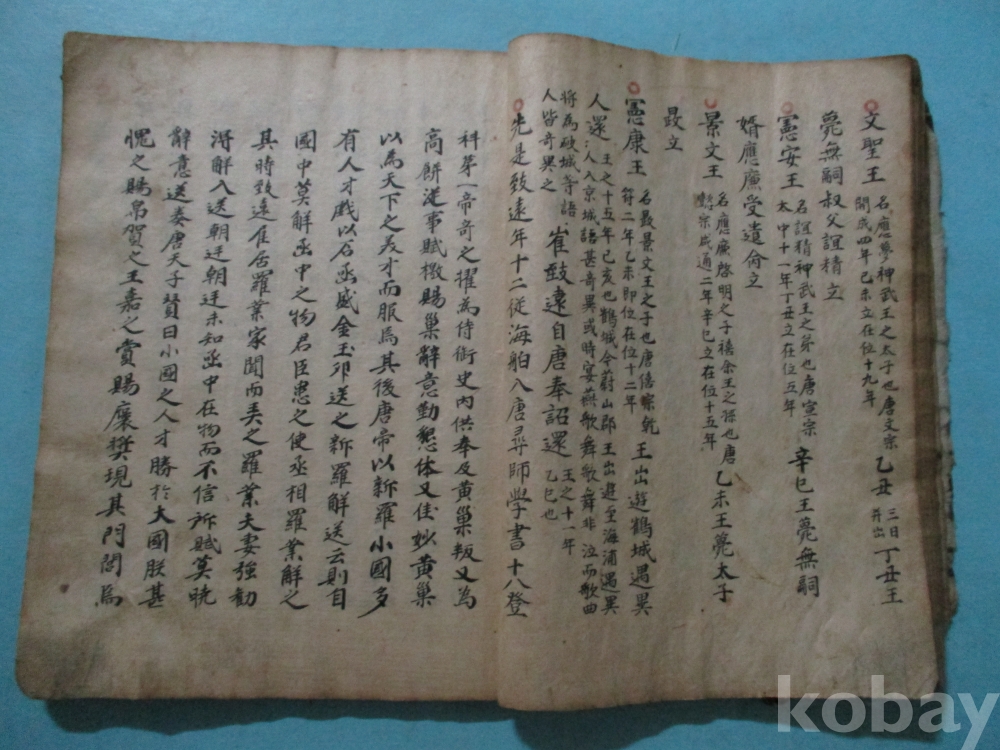 文聖王 名應夢神武王之太子也唐文宗開成四年己未立在位十九年 乙丑 三日並出 丁丑王
薨無嗣叔父誼精立
憲安王 名誼精神武王之弟也唐宣宗太中十一年丁丑立在位五年 辛巳王薨無嗣
婿應廉受遺命立
景文王 名應廉啓明之子禧余王之孫也唐懿宗咸通二年辛巳立在位十五年 乙未王薨太子
晸立
憲康王 名晸景文王之子也唐僖宗乾符二年乙未即位在位十二年 王出遊鶴城遇異
人還 王之十五年己亥也鶴城今蔚山郡王出遊至海浦遇異人入京城語甚奇異或時宴燕歌舞歌舞非泣而歌曲
將為破城等語人皆奇異之 崔致遠自唐奉詔還 王之十一年乙巳也
先是致遠年十二從海舶入唐尋師學書十八登
科第一帝奇之擢為侍御史內供奉及黃巢叛又為
高餠從事賦檄賜巢辭意勤懇体又佳妙黃巢
以為天下之美才而服焉其後唐帝以新羅小國多
有人才戲以石函盛金玉卵送之新羅解送云則自
國中莫解函中之物君臣患之使丞相羅業解之
其時致遠隹居羅業家聞而美之羅業夫妻強勸
淂解入送朝廷朝廷未知函中在物而不信訴賦莫曉
辭意送奏唐天子賛曰小國之人才勝於大國朕甚
愧之賜帛賀之王嘉之賞賜穰獎現其門閭焉
kobay